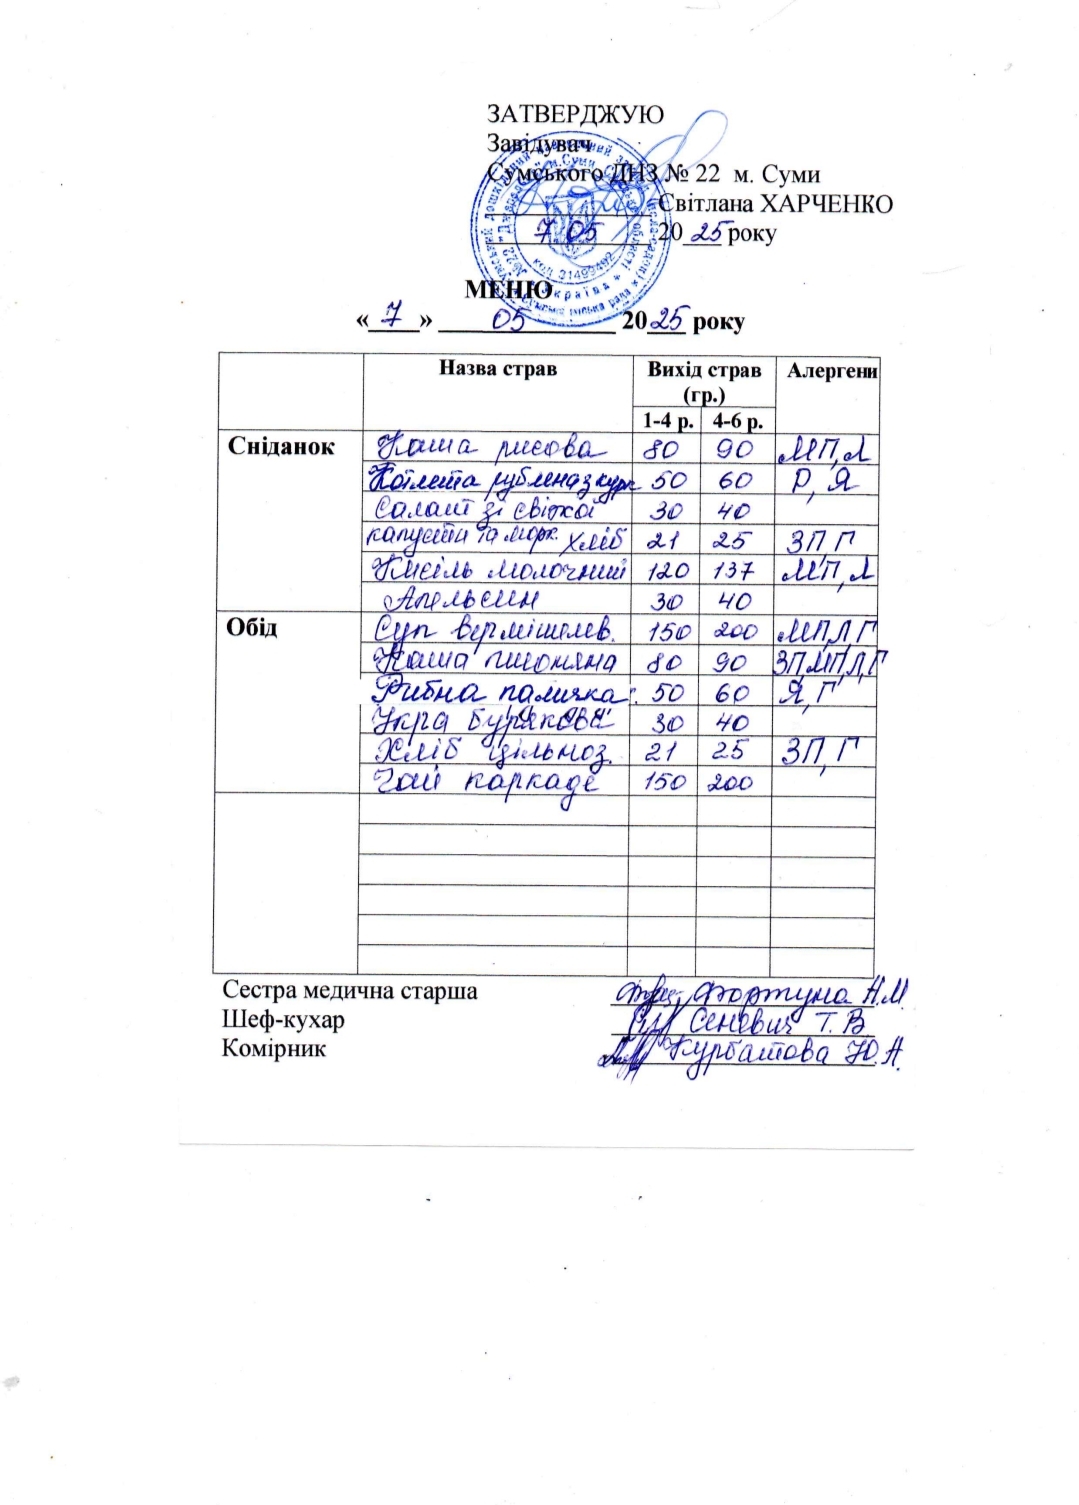 ЗАТВЕРДЖУЮ
Завідувач
Сумського ДНЗ № 22 м. Суми
Світлана ХАРЧЕНКО
7 05 2025 року
МЕНЮ
«7» 05 2025 року
Назва страв Вихід страв (гр.) Алергени
1-4 р. 4-6 р.
Сніданок Каша рисова 80 90 МП,Л
Котлета рублена з кур. 50 60 Р, Я
Салат зі свіжої 30 40
капусти та морк. Хліб 21 25 ЗП Г
Кисіль молочний 120 137 МП,Л
Апельсин 30 40
Обід Суп вермішелев. 150 200 МП,Л,Г
Каша пшоняна 80 90 ЗП,МП,Л,Г
Рибна паличка 50 60 Я,Г
Ікра бурякова 30 40
Хліб цільноз. 21 25 ЗП,Г
Чай каркаде 150 200
Сестра медична старша Фортуна Н.М
Шеф-кухар Сеневич Т.В
Комірник Курбатова Ю.А.